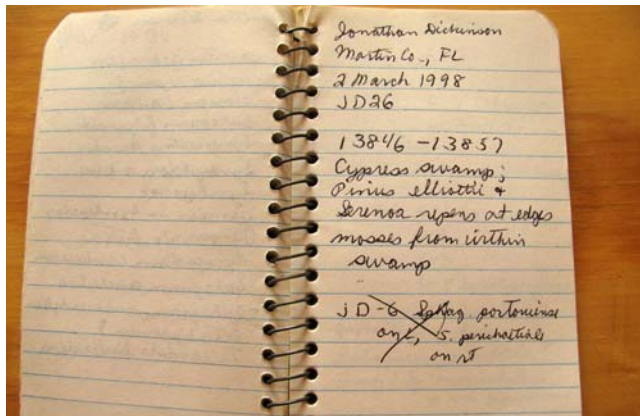 Jonathan Dickinson
Martin Co., FL
2 March 1998
JD26
13846 - 13857
Cypress swamp;
Pinus elliottii &
Serenoa repens at edges
mosses from within
swamp
JD-6 Sphag. portoricense
on L, S. perichaetiale
on rt